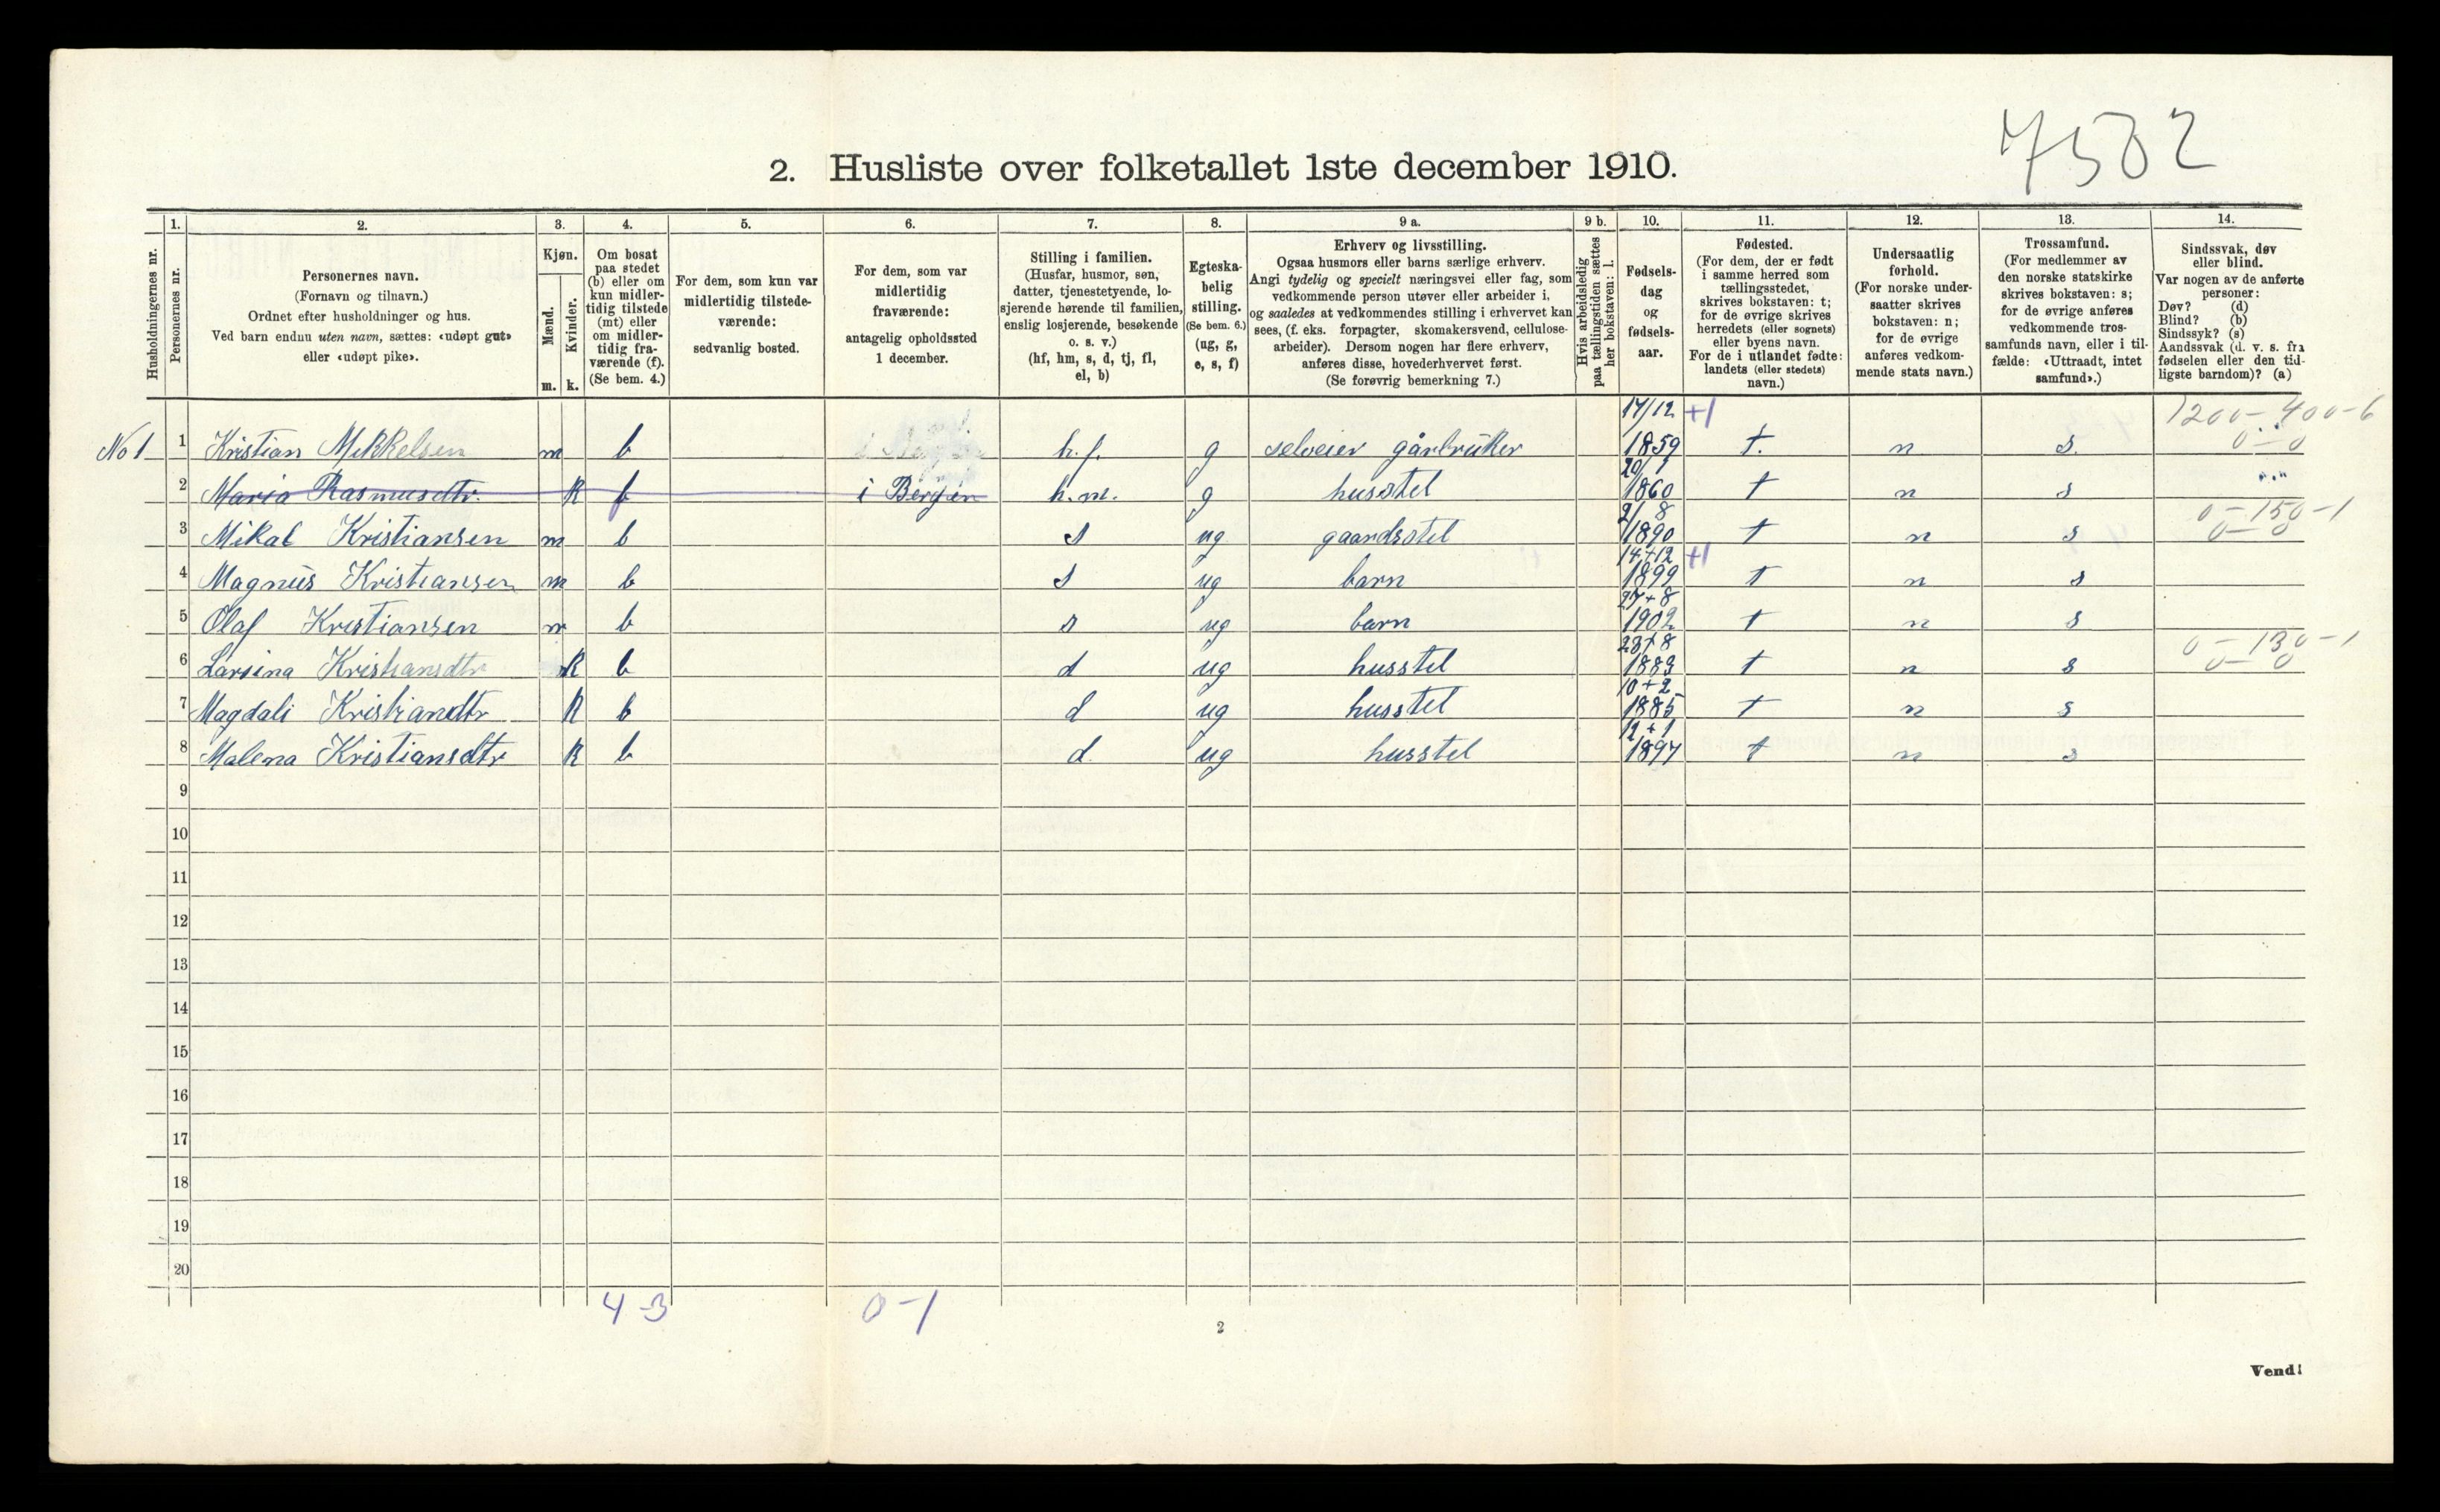 7502
2. Husliste over folketallet 1ste december 1910.
Husholdningernes nr.
1. Personernes nr.
2. Personernes navn.
(Fornavn og tilnavn.)
Ordnet efter husholdninger og hus.
Ved barn endnu uten navn, sættes: «udøpt gut»
eller «udøpt pike».
3. Kjøn.
Mænd. m.
Kvinder. k.
4. Om bosat
paa stedet
(b) eller om
kun midler-
tidig tilstede
(mt) eller
om midler-
tidig fra-
værende (f).
(Se bem. 4.)
5. For dem, som kun var
midlertidig tilstede-
værende:
sedvanlig bosted.
6. For dem, som var
midlertidig
fraværende:
antagelig opholdssted
1 december.
7. Stilling i familien.
(Husfar, husmor, søn,
datter, tjenestetyende, lo-
sjerende hørende til familien,
enslig losjerende, besøkende
o. s. v.)
(hf, hm, s, d, tj, fl,
el, b)
8. Egteska-
belig
stilling.
(Se bem. 6.)
(ug, g,
e, s, f)
9 a. Erhverv og livsstilling.
Ogsaa husmors eller barns særlige erhverv.
Angi tydelig og specielt næringsvei eller fag, som
vedkommende person utøver eller arbeider i,
og saaledes at vedkommendes stilling i erhvervet kan
sees, (f. eks. forpagter, skomakersvend, cellulose-
arbeider). Dersom nogen har flere erhverv,
anføres disse, hovederhvervet først.
(Se forøvrig bemerkning 7.)
9 b. Hvis arbeidsledig
paa tællingstiden sættes
her bokstaven: l.
10. Fødsels-
dag
og
fødsels-
aar.
11. Fødested.
(For dem, der er født
i samme herred som
tællingsstedet,
skrives bokstaven: t;
for de øvrige skrives
herredets (eller sognets)
eller byens navn.
For de i utlandet fødte:
landets (eller stedets)
navn.)
12. Undersaatlig
forhold.
(For norske under-
saatter skrives
bokstaven: n;
for de øvrige
anføres vedkom-
mende stats navn.)
13. Trossamfund.
(For medlemmer av
den norske statskirke
skrives bokstaven: s;
for de øvrige anføres
vedkommende tros-
samfunds navn, eller i til-
fælde: «Uttraadt, intet
samfund».)
14. Sindssvak, døv
eller blind.
Var nogen av de anførte
personer:
Døv? (d)
Blind? (b)
Sindssyk? (s)
Aandssvak (d. v. s. fra
fødselen eller den tid-
ligste barndom)? (a)
No 1 1 Kristian Mikkelsen m b h.f. g selveier gårbruker 17/12 1859 +1 t. n s. 1200 - 400 - 6 0 - 0
2 Maria Rasmusdtr. k f i Bergen h.m. g husstel 20/1 1860 t n s
3 Mikal Kristiansen m b s ug gaardsstel 2/8 1890 t n s 0 - 150 - 1 0 - 0
4 Magnus Kristiansen m b s ug barn 14+12 1899 +1 t n s
5 Olaf Kristiansen m b s ug barn 27+8 1902 t n s
6 Larsina Kristiansdtr k b d ug husstel 23+8 1883 t n s 0 - 130 - 1 0 - 0
7 Magdali Kristiandtr k b d ug husstel 10+2 1885 t n s
8 Malena Kristiansdtr k b d ug husstel 12+1 1897 t n s
9
10
11
12
13
14
15
16
17
18
19
20
4 - 3 0 - 1
2
Vend!